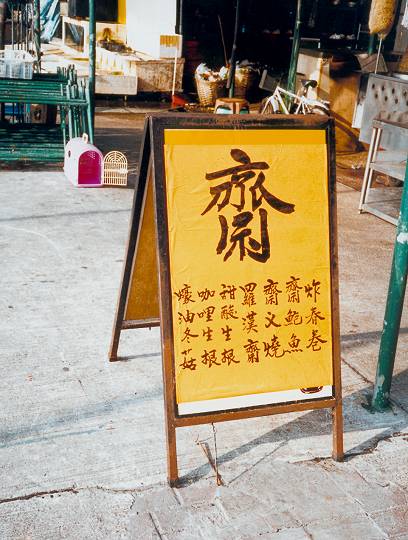 齋
炸春卷
齋鮑魚
齋义燒
羅漢齋
甜酸生根
咖哩生根
蠔油冬菇